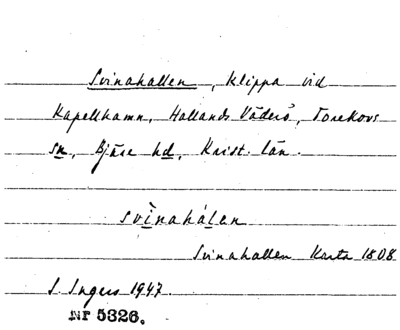 Svinahallen, klippa vid
Kapellhamn, Hallands Väderö, Torekovs
sn, Bjäre hd, Krist. län.
svìnahálen
Svinahallen Karta 1808
I. Ingers 1947.
Nr 5326.